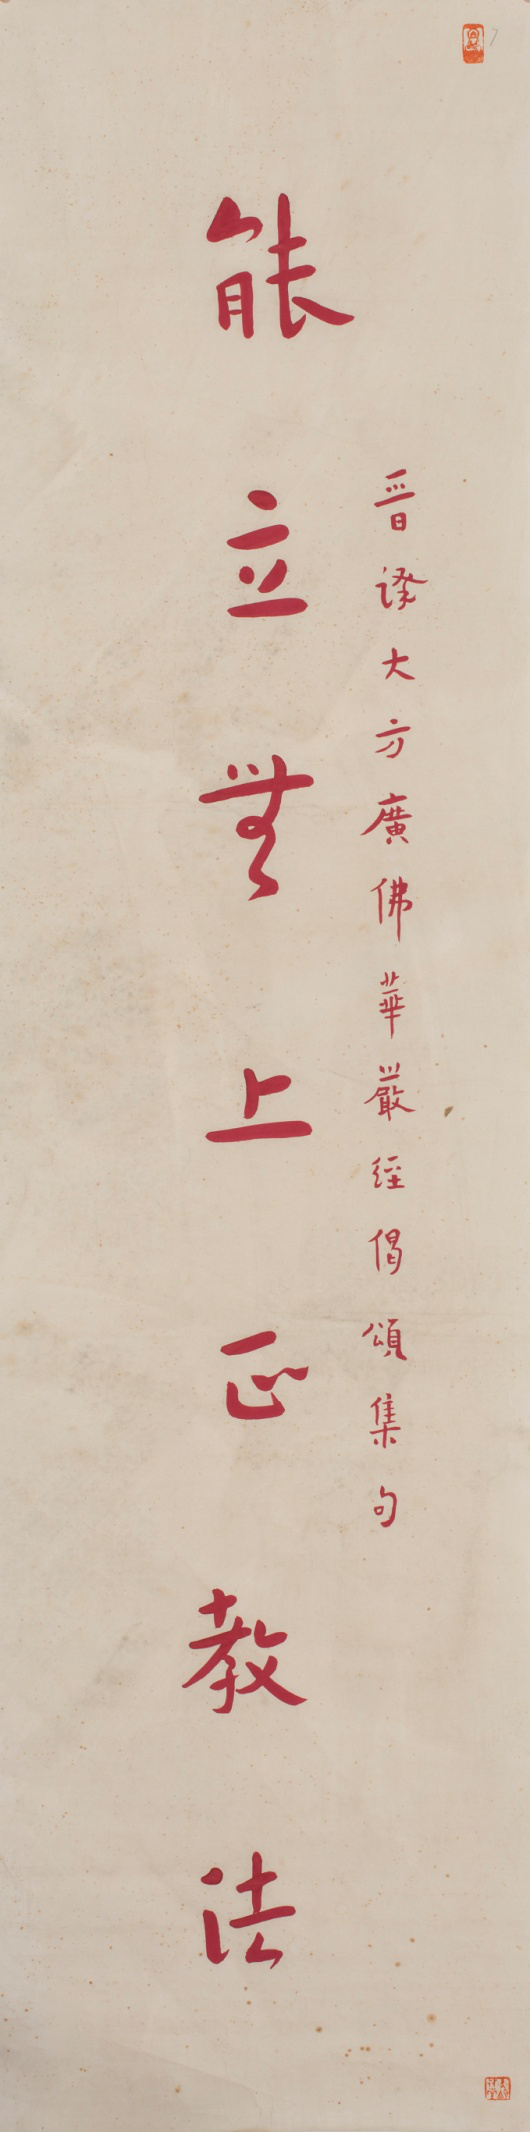 晉譯大方廣佛華嚴經偈頌集句
能立無上正教法